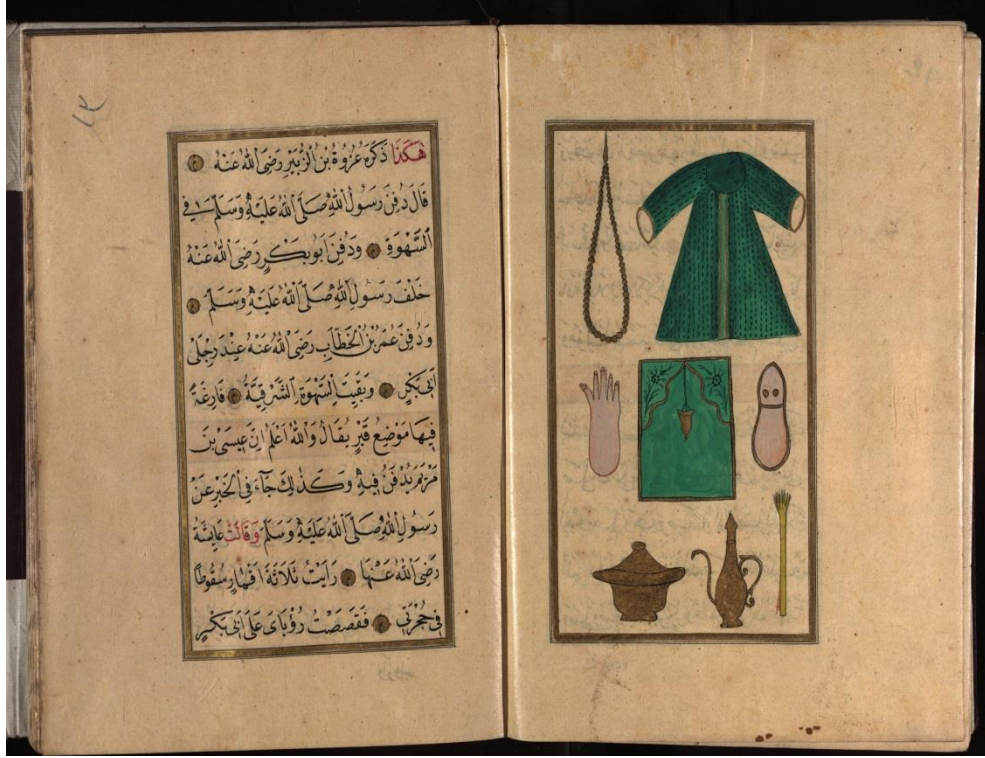 هَكَذَا ذَكَرَهُ عُرْوَةُ بْنُ الزُّبَيْرِ رَضِيَ اللّٰهُ عَنْهُ
قَالَ دُفِنَ رَسُولُ اللّٰهِ صَلَّى اللّٰهُ عَلَيْهِ وَسَلَّمَ فِي
السَّهْوَةِ وَدُفِنَ أَبُو بَكْرٍ رَضِيَ اللّٰهُ عَنْهُ
خَلْفَ رَسُولِ اللّٰهِ صَلَّى اللّٰهُ عَلَيْهِ وَسَلَّمَ
وَدُفِنَ عُمَرُ بْنُ الْخَطَّابِ رَضِيَ اللّٰهُ عَنْهُ عِنْدَ رِجْلَيْ
أَبِي بَكْرٍ وَبَقِيَتِ السَّهْوَةُ الشَّرْقِيَّةُ فَارِغَةً
فِيهَا مَوْضِعُ قَبْرٍ يُقَالُ وَاللّٰهُ أَعْلَمُ إِنَّ عِيسَى بْنَ
مَرْيَمَ يُدْفَنُ فِيهِ وَكَذٰلِكَ جَاءَ فِي الْخَبَرِ عَنْ
رَسُولِ اللّٰهِ صَلَّى اللّٰهُ عَلَيْهِ وَسَلَّمَ وَقَالَتْ عَائِشَةُ
رَضِيَ اللّٰهُ عَنْهَا رَأَيْتُ ثَلَاثَةَ أَقْمَارٍ سُقُوطًا
فِي حُجْرَتِي فَقَصَصْتُ رُؤْيَايَ عَلَى أَبِي بَكْرٍ